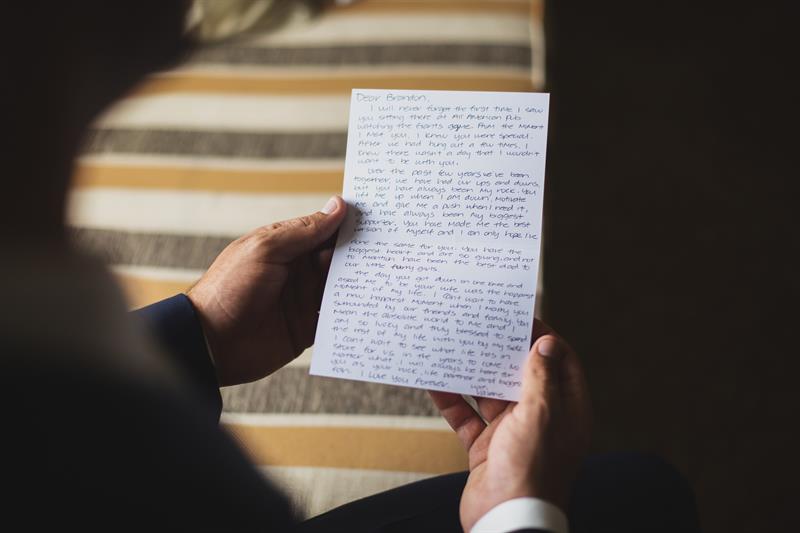 Dear Brandon,
I will never forget the first time I saw
you sitting there at All American Pub
watching the Giants game. From the moment
I met you, I knew you were special.
After we had hung out a few times, I
knew there wasn't a day that I wouldn't
want to be with you.
Over the past few years we've been
together, we have had our ups and downs,
but you have always been my rock. You
lift me up when I am down, motivate
me and give me a push when I need it,
and have always been my biggest
supporter. You have made me the best
version of myself and I can only hope I've
done the same for you. You have the
biggest heart and are so giving, and not
to mention have been the best dad to
our little furry girls.
The day you got down on one knee and
asked me to be your wife was the happiest
moment of my life. I can't wait to have
a new happiest moment when I marry you
surrounded by our friends and family. You
mean the absolute world to me and I
am so lucky and truly blessed to spend
the rest of my life with you by my side.
I can't wait to see what life has in
store for us in the years to come. No
matter what, I will always be here for
you as your rock, life partner and biggest
fan. I Love You Forever.
Valerie